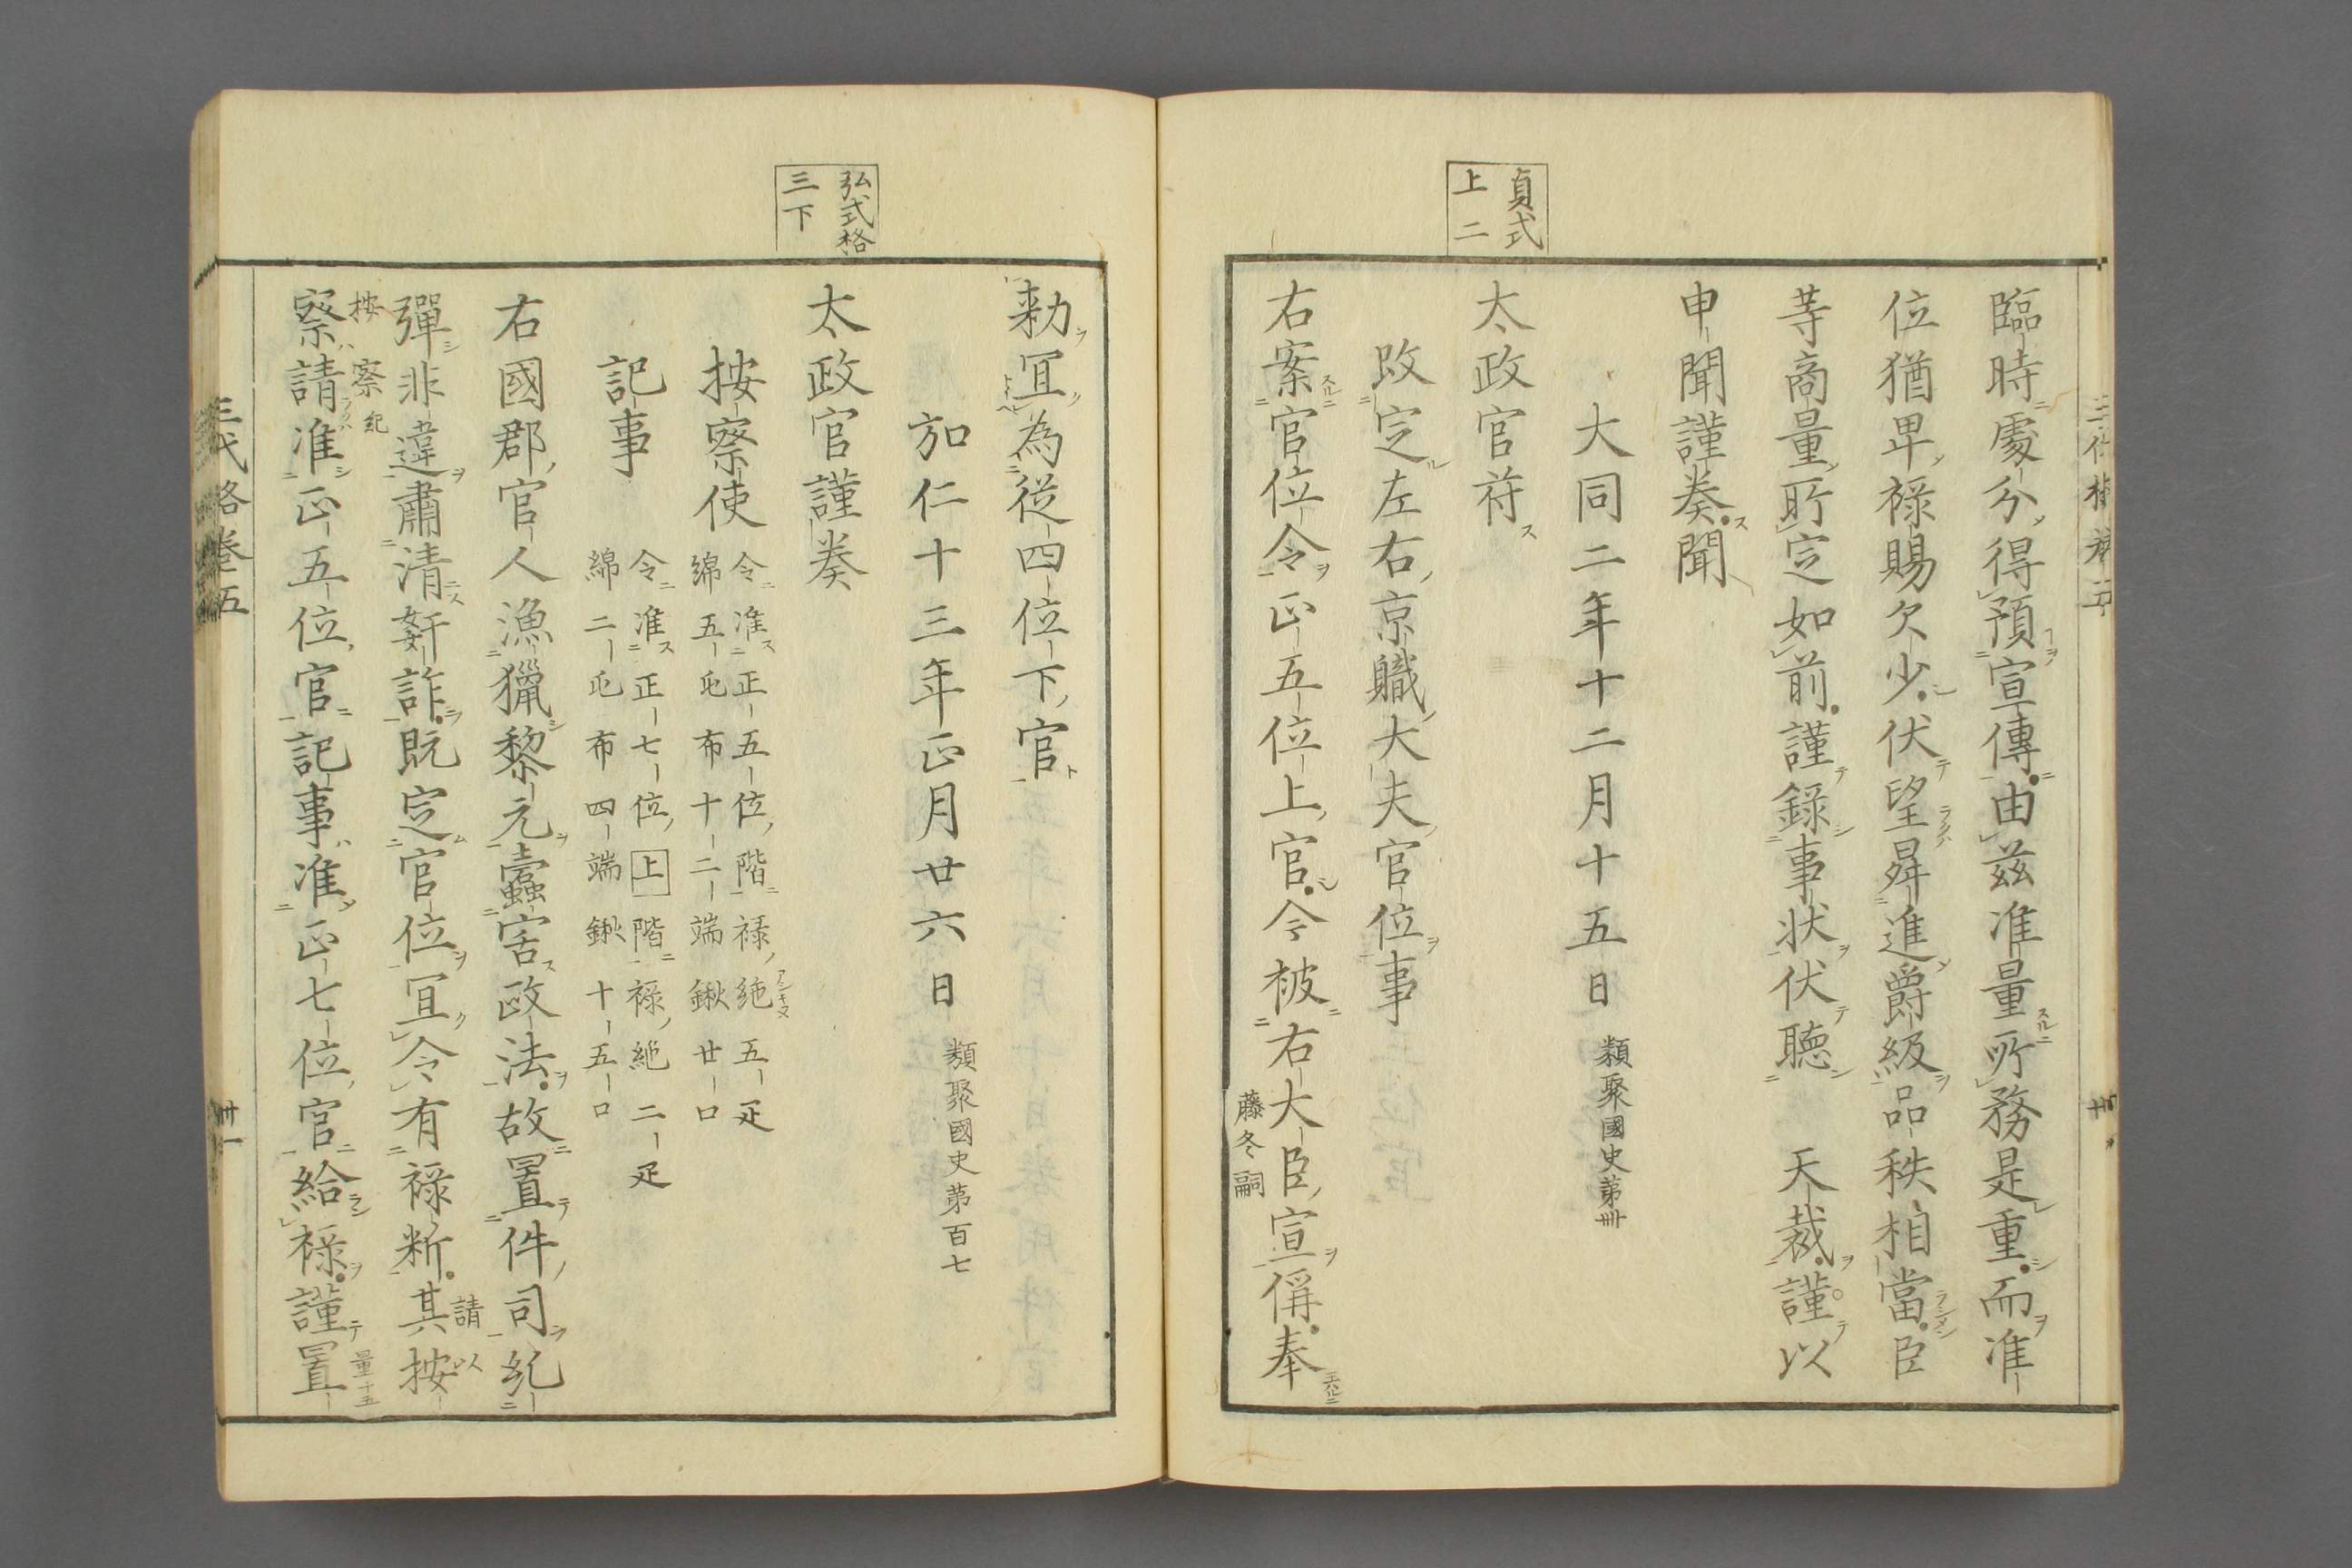 貞式
上二
臨時處分得預宣傳由兹准量所務是重而准
位猶卑祿賜欠少伏望昇進爵級品秩相當臣
等商量所定如前謹錄事狀伏聽　天裁謹以
申聞謹奏聞
大同二年十二月十五日 類聚國史第卌
太政官符
改定左右京職大夫官位事
右案官位令正五位上官今被右大臣宣偁奉
藤冬嗣
弘式格
三下
勅冝為從四位下官
弘仁十三年正月廿六日 類聚國史第百七
太政官謹奏
按察使 令准正五位階祿絁五疋
綿五屯布十二端鍬廿口
記事 令准正七位上階祿絁二疋
綿二屯布四端鍬十五口
右國郡官人漁獵黎元蠹害政法故置件司糺
彈非違肅清姧詐既定官位冝令有祿料其按
請以
察請准正五位官記事准正七位官給祿謹置
按察紀
量十五
三代格卷五
卅一